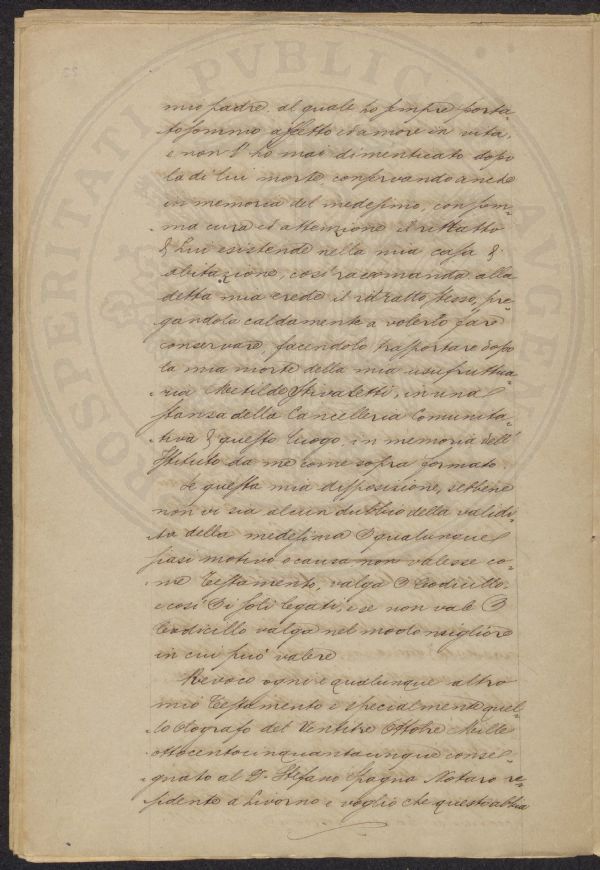 mio padre al quale ho sempre porta-
to sommo affetto ed amore in vita,
e non l'ho mai dimenticato dopo
la di lui morte, conservando anche
in memoria del medesimo, con som-
ma cura ed attenzione il ritratto
di Lui esistende nella mia casa di
abitazione, così racomando alla
detta mia erede il ritratto stesso, pre-
gandola caldamente a volerlo fare
conservare, facendolo trasportare dopo
la mia morte della mia usufruttua-
ria Metilde Stivaletti, in una
stansa della Cancelleria Comunita-
tiva di questo Luogo, in memoria dell'
Istituto da me come sopra formato.
E questa mia disposizione, sebbene
non vi sia alcun dubbio della validi-
tà della medesima per qualunque
siasi motivo o causa non valesse co-
me Testamento, valga per Codicillo.
e così di soli legati, e se non vale per
Codicillo valga nel modo migliore
in cui può valere
Revoco ogni e qualunque altro
mio Testamento e specialmente quel-
lo Olografo del Ventitre Ottobre Mille
ottocentocinquantacinque conse-
gnato al Dr. Stefano Spagna Notaro re-
sidente a Livorno e voglio che questo abbia
PROSPERITATI PVBLICAE AVGEN